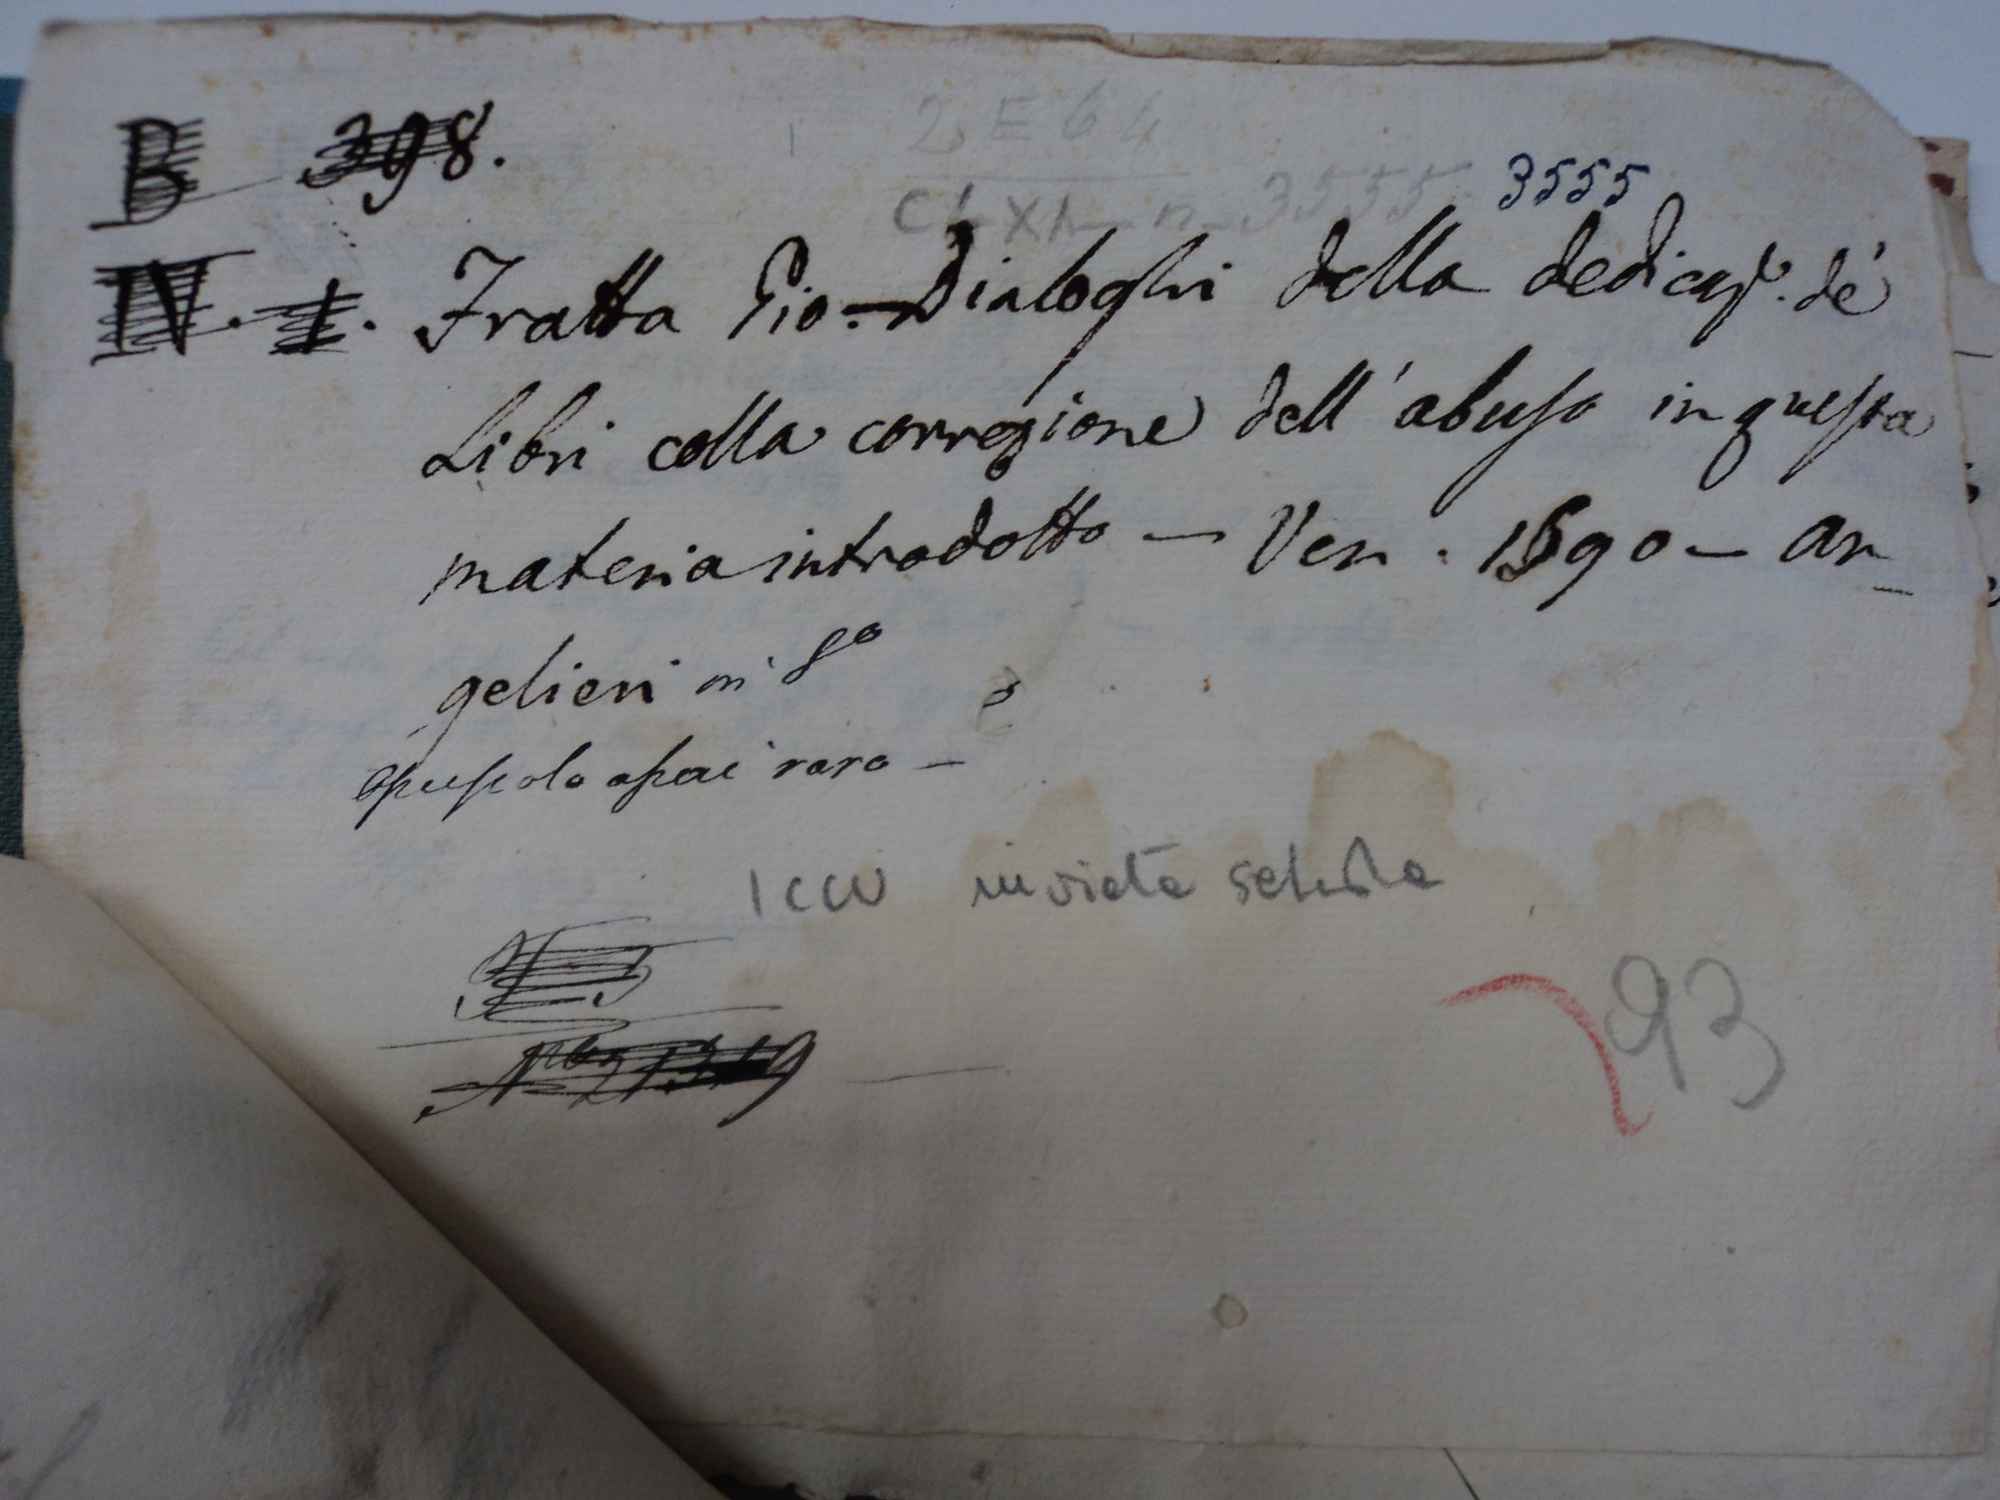 B 398.
2 E 64
Cl XI n 3555 3555
N. 1. Fratta Gio. Dialoghi della dedicaz.e de'
Libri colla corregione dell'abuso in questa
materia introdotto - Ven. 1590 - An
gelieri in 8o
opuscolo assai raro -
ICCU inviata scheda
93